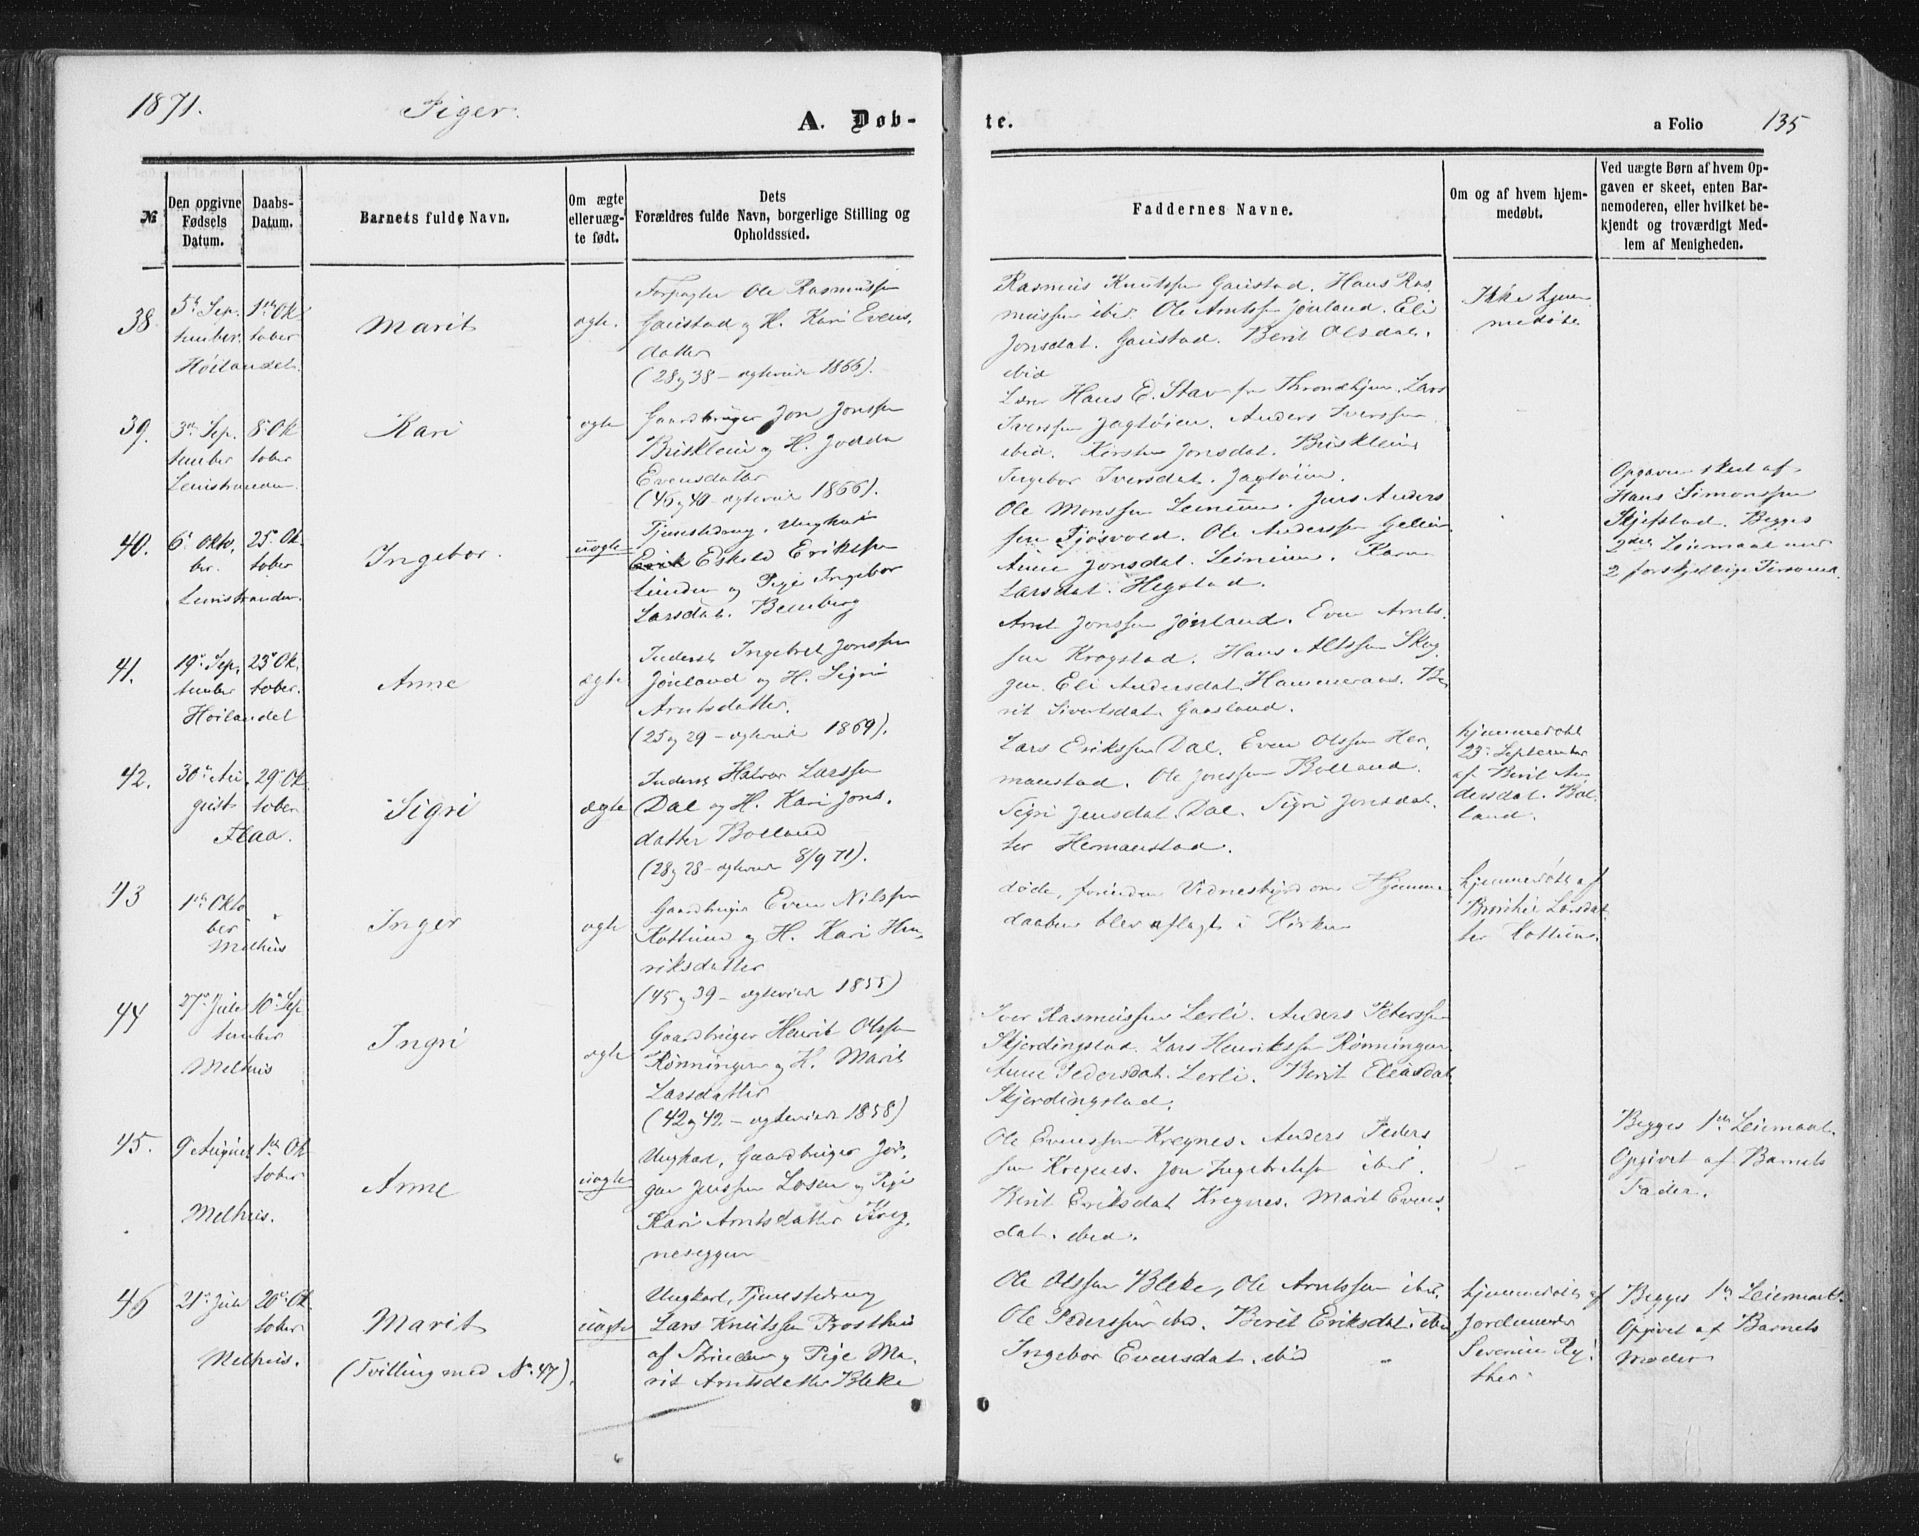 1871. Piger.
A. Døb-
te.
a Folio 135
№
Den opgivne Fødsels Datum.
Daabs-Datum.
Barnets fulde Navn.
Om ægte eller uæg-te født.
Dets
Forældres fulde Navn, borgerlige Stilling og
Opholdssted.
Faddernes Navne.
Om og af hvem hjem-
medøbt.
Ved uægte Børn af hvem Op-
gaven er skeet, enten Bar-
nemoderen, eller hvilket be-
kjendt og troværdigt Med-
lem af Menigheden.
38.
5te Sep-
tember
Høilandet
1ste Ok
tober
Marit
ægte.
Forpagter Ole Rasmussen
Gaustad og H. Kari Evens-
datter
(28 og 38 – ægteviede 1866).
Rasmus Knutssen Gaustad. Hans Ras-
mussen ibid. Ole Arntssen Jønland. Eli
Jonsdat. Gaustad. Berit Olsdat.
ibid
Ikke hjem
medøbt
39.
3die Sep.
tember
Leinstranden
8de Ok
tober
Kari
ægte
Gaardbruger Jon Jonssen
Brisklein og H.
Evensdatter
(46 og 40 – ægteviede 1866).
Hans E. Stav fra Throndhjem. Lars
Iverssen Jagtøien. Anders Iverssen
ibid. Kirsten Jonsdat. Brisklein
Ingebor Iversdat. Jagtøien.
40.
6te Okto.
ber.
Leinstranden.
25de Ok
tober
Ingebor.
uægte
Tjenestedreng, Ungkarl
Erik Eskild Erikssen
Linden og Pige Ingebor
Larsdat. Bemberg
Ole Monssen Leinum. Jens Anders
sen Tjøsvold. Ole Anderssen
Anne Jonsdat. Leinum. Karen
Larsdat. Hegstad.
Opgaven skeet af
Hans Simonssen
Skjefstad. Begges
2det Leiermaal med
2 forskjellige Personer.
41.
19de Sep.
tember
Høilandet
23de Ok.
tober.
Anne
ægte
Inderst Ingebret Jonssen
Jønland og H. Sigri
Arntsdatter.
(25 og 29 – ægteviede 1869).
Arnt Jonssen Jønland. Even Arnts
sen Krogstad. Hans Altssen Skog
gen. Eli Andersdat. Hammeraas. Be
rit Sivertsdat. Gaasland.
42.
30te Au
gust
Flaa.
29de Ok
tober
Sigri
ægte
Inderst Halvor Larssen
Dal og H. Kari Jons.
datter Bolland
(28 og 28 – ægteviede 8/9 71).
Lars Erikssen Dal. Even Olssen Her
manstad. Ole Jonssen Bolland.
Sigri Jensdat. Dal. Sigri Jonsdat
ter Hermanstad.
hjemmedøbt
23de September
af Berit An
dersdat. Bol
land.
43
1ste Okto
ber
Melhus
Inger
ægte
Gaardbruger Even Nilssen
Kottum og H. Kari Hen
riksdatter
(45 og 39 – ægteviede 1855)
døde, forinden Vidnesbyrd om Hjemme
daaben blev aflagt i Kirken
hjemmedøbt af
Larsdat
ter Kottum.
44
27de Juli
Melhus
10de Sep
tember
Ingri
ægte
Gaardbruger Henrik Olssen
Rønningen og H. Marit
Larsdatter
(42 og 42 – ægteviede 1858)
Iver Rasmussen Lerli. Anders Peterssen
Skjerdingstad. Lars Henrikssen Rønningen
Anne Pedersdat. Lerli. Berit Eliasdat
Skjerdingstad.
45.
9de August
Melhus.
1ste Ok
tober
Anne
uægte
Ungkarl, Gaardbruger Jør-
gen Jenssen Losen og Pige
Kari Arntsdatter Kreg
neseggen
Ole Evenssen Kregnes. Anders Peders
sen Kregnes. Jon Ingebretssen ibid.
Berit Eriksdat Kregnes. Marit Evens
dat. ibid.
Begges 1ste Leiermaal.
Opgivet af Barnets
Fader.
46
21de Juli
Melhus.
20de Ok
tober
Marit
(Tvilling med No. 47).
uægte
Ungkarl, Tjenestedreng
Lars Knutssen Presthus
af Strinden og Pige Ma-
rit Arntsdatter Bleke
Ole Olssen Bleke, Ole Arntssen ibid,
Ole Pederssen ibid. Berit Eriksdat. ibid
Ingebor Evensdat. ibid
hjemmedøbt af
Jordemoder
Severine Ry
ther
Begges 1ste Leiermaal.
Opgivet af Barnets
Moder